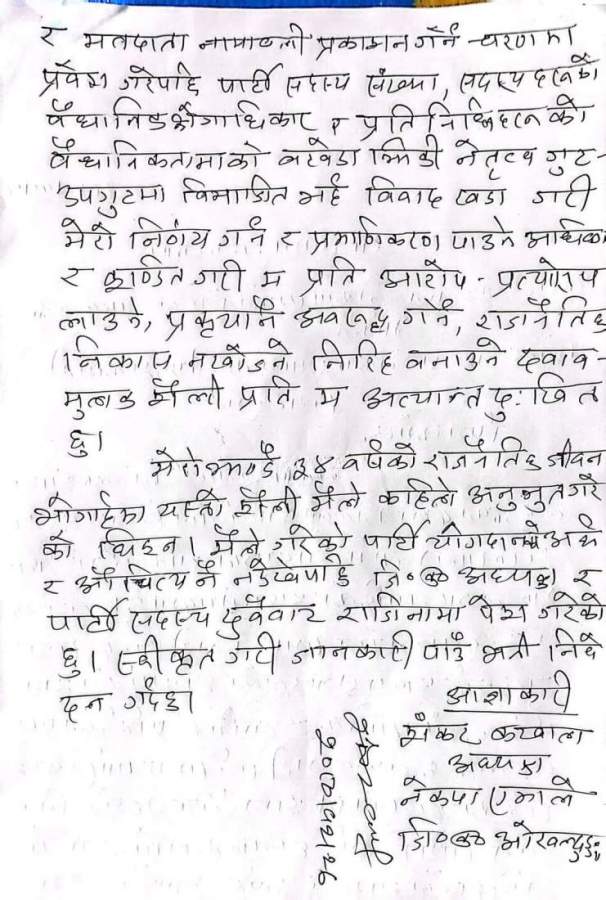 र मतदाता नामावली प्रकाशन गर्ने चरणमा
प्रवेश गरेपछि पार्टी सदस्य संख्या, सदस्य
वैधानिक भोगाधिकार र प्रतिनिधि
वैधानिकतामाको बखेडा झिकी नेतृत्व गुट-
उपगुटमा विभाजित भई विवाद खडा गरी
मेरो निर्णय गर्न र प्रमाणिकरण पाउने अधिकार
र कुण्ठित गरी म प्रति आरोप - प्रत्यारोप
लाउने, प्रकृयानै अवरुद्ध गर्ने, राजनैतिक
निकास नखोज्ने निरिह बनाउने दवाव-
मुलक शैली प्रति म अत्यान्त दु:खित
छु।
मेरो झण्डै ३४ वर्षको राजनैतिक जीवन
भोगाईमा यस्तो शैली मैले कहिलै अनुभुत गरे
को थिइन। मैले गरेको पार्टी योगदानको अर्थ
र औचित्य नै नदेखेपछि जि०क० अध्यक्ष र
पार्टी सदस्य दुवैबाट राजिनामा पेश गरेको
छु। स्वीकृत गरी जानकारी पाउँ भनी निवे
दन गर्दछु।
आज्ञाकारी
अध्यक्ष
नेकपा एमाले
जि०क० ओखलढुङ्गा